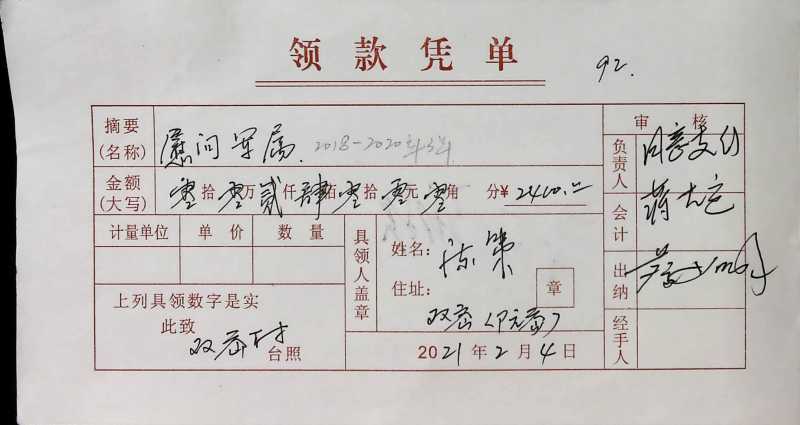 领款凭单
92.
摘要(名称) 慰问军属. 2018-2020年3年
审核
负责人 同意支付
金额(大写) 零拾零万贰仟肆佰零拾零元零角 分¥2400.00
会计
计量单位 单价 数量
具领人盖章
姓名：陈策
住址：双峦
章
出纳
上列具领数字是实
此致
双峦村台照
2021年2月4日
经手人